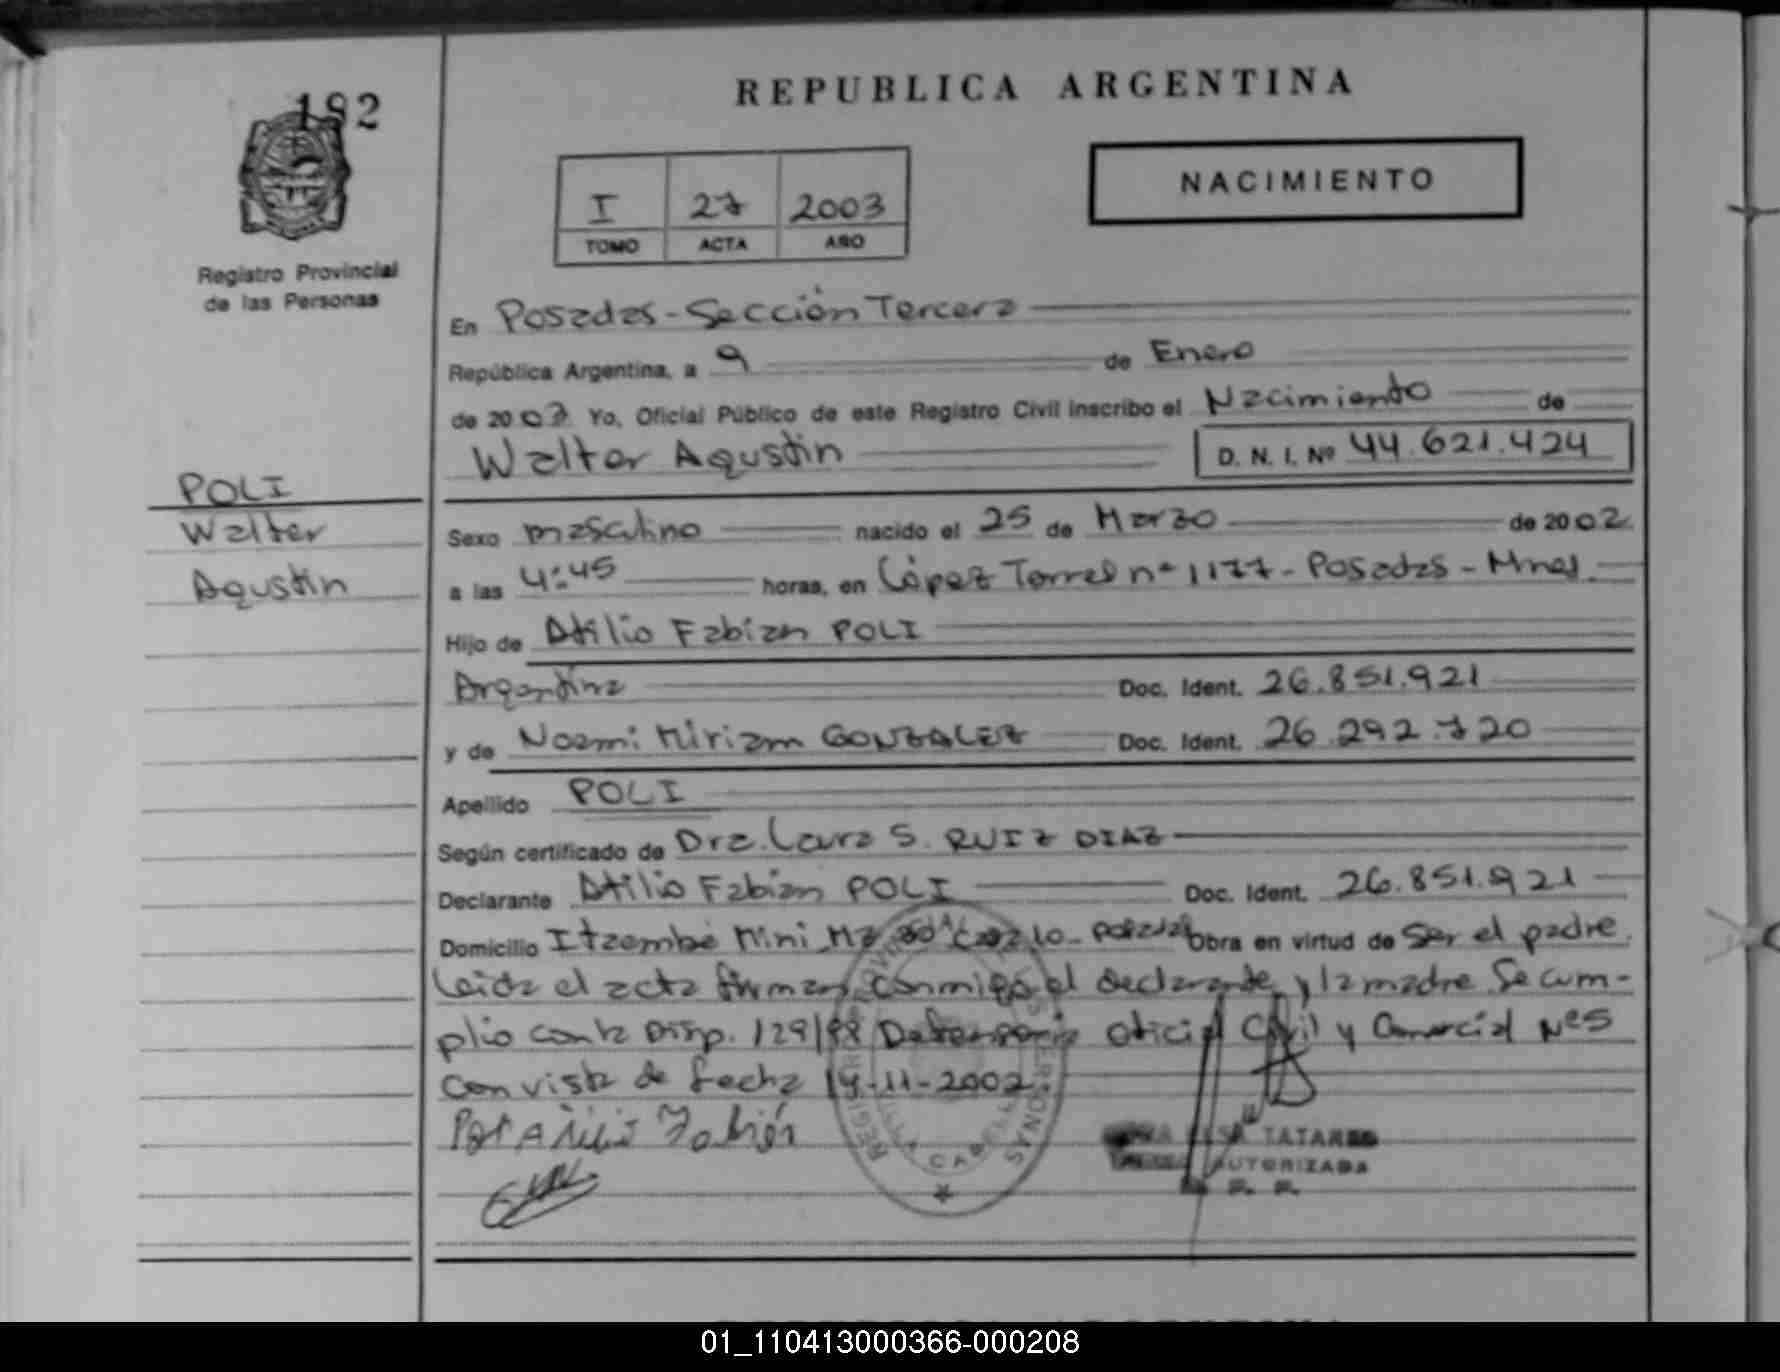 192
REPUBLICA ARGENTINA
NACIMIENTO
I 27 2003
TOMO ACTA AÑO
Registro Provincial
de las Personas
En Posadas - Sección Tercera
República Argentina, a 9 de Enero
de 2003 Yo, Oficial Público de este Registro Civil inscribo el Nacimiento de
Walter Agustin D. N. I. Nº 44.621.424
POLI
Walter
Agustin
Sexo masculino nacido el 25 de Marzo de 2002
a las 4:45 horas, en López Torres nº 1177 - Posadas - Mnes.
Hijo de Atilio Fabian POLI
Argentina Doc. Ident. 26.851.921
y de Noemi Miriam GONZALEZ Doc. Ident. 26.292.720
Apellido POLI
Según certificado de Dra. Laura S. RUIZ DIAZ
Declarante Atilio Fabian POLI Doc. Ident. 26.851.921
Domicilio Itaembé Mini Mz Casa 10 - Posadas Obra en virtud de Ser el padre.
Leida el acta firman conmigo el declarante y la madre Se cum-
plio con la Disp. 129/98 Defensoria Oficial Civil y Comercial Nº 5
con vista de fecha 14-11-2002
Poli Atilio Fabián
REGISTRO PROVINCIAL DE LAS PERSONAS
TATAREN
AUTORIZADA
01_110413000366-000208